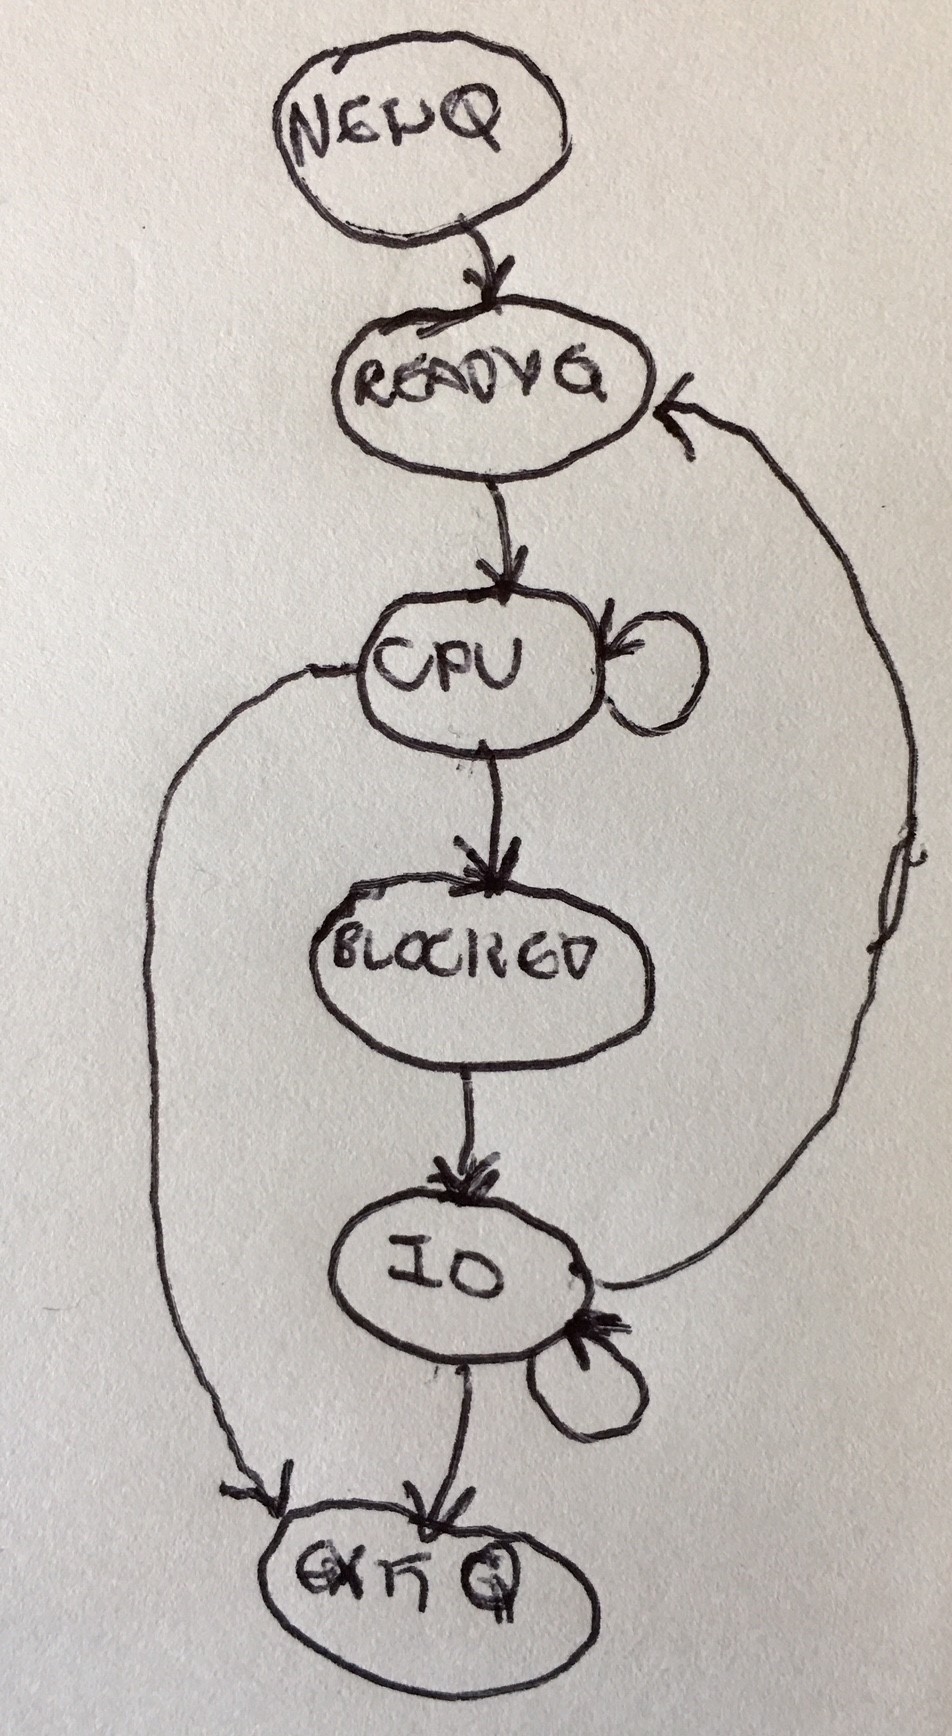 NEWQ
READYQ
CPU
BLOCKED
IO
EXIT Q